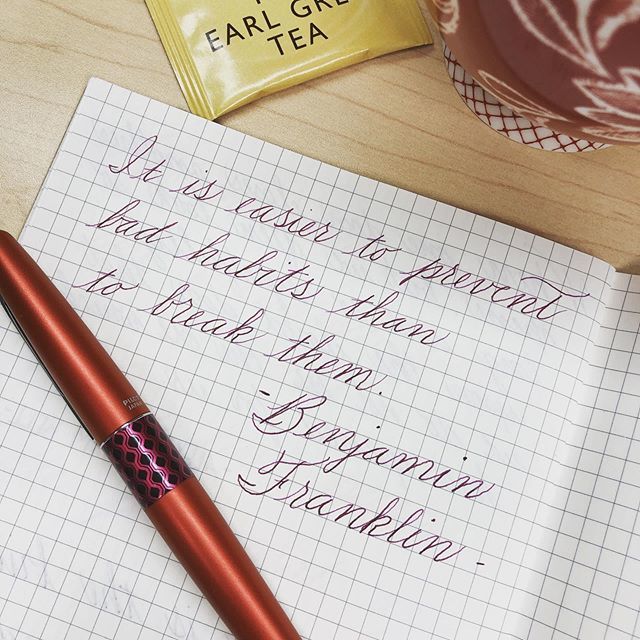 EARL GRE
TEA
It is easier to prevent
bad habits than
to break them.
- Benjamin
Franklin -
JAPAN